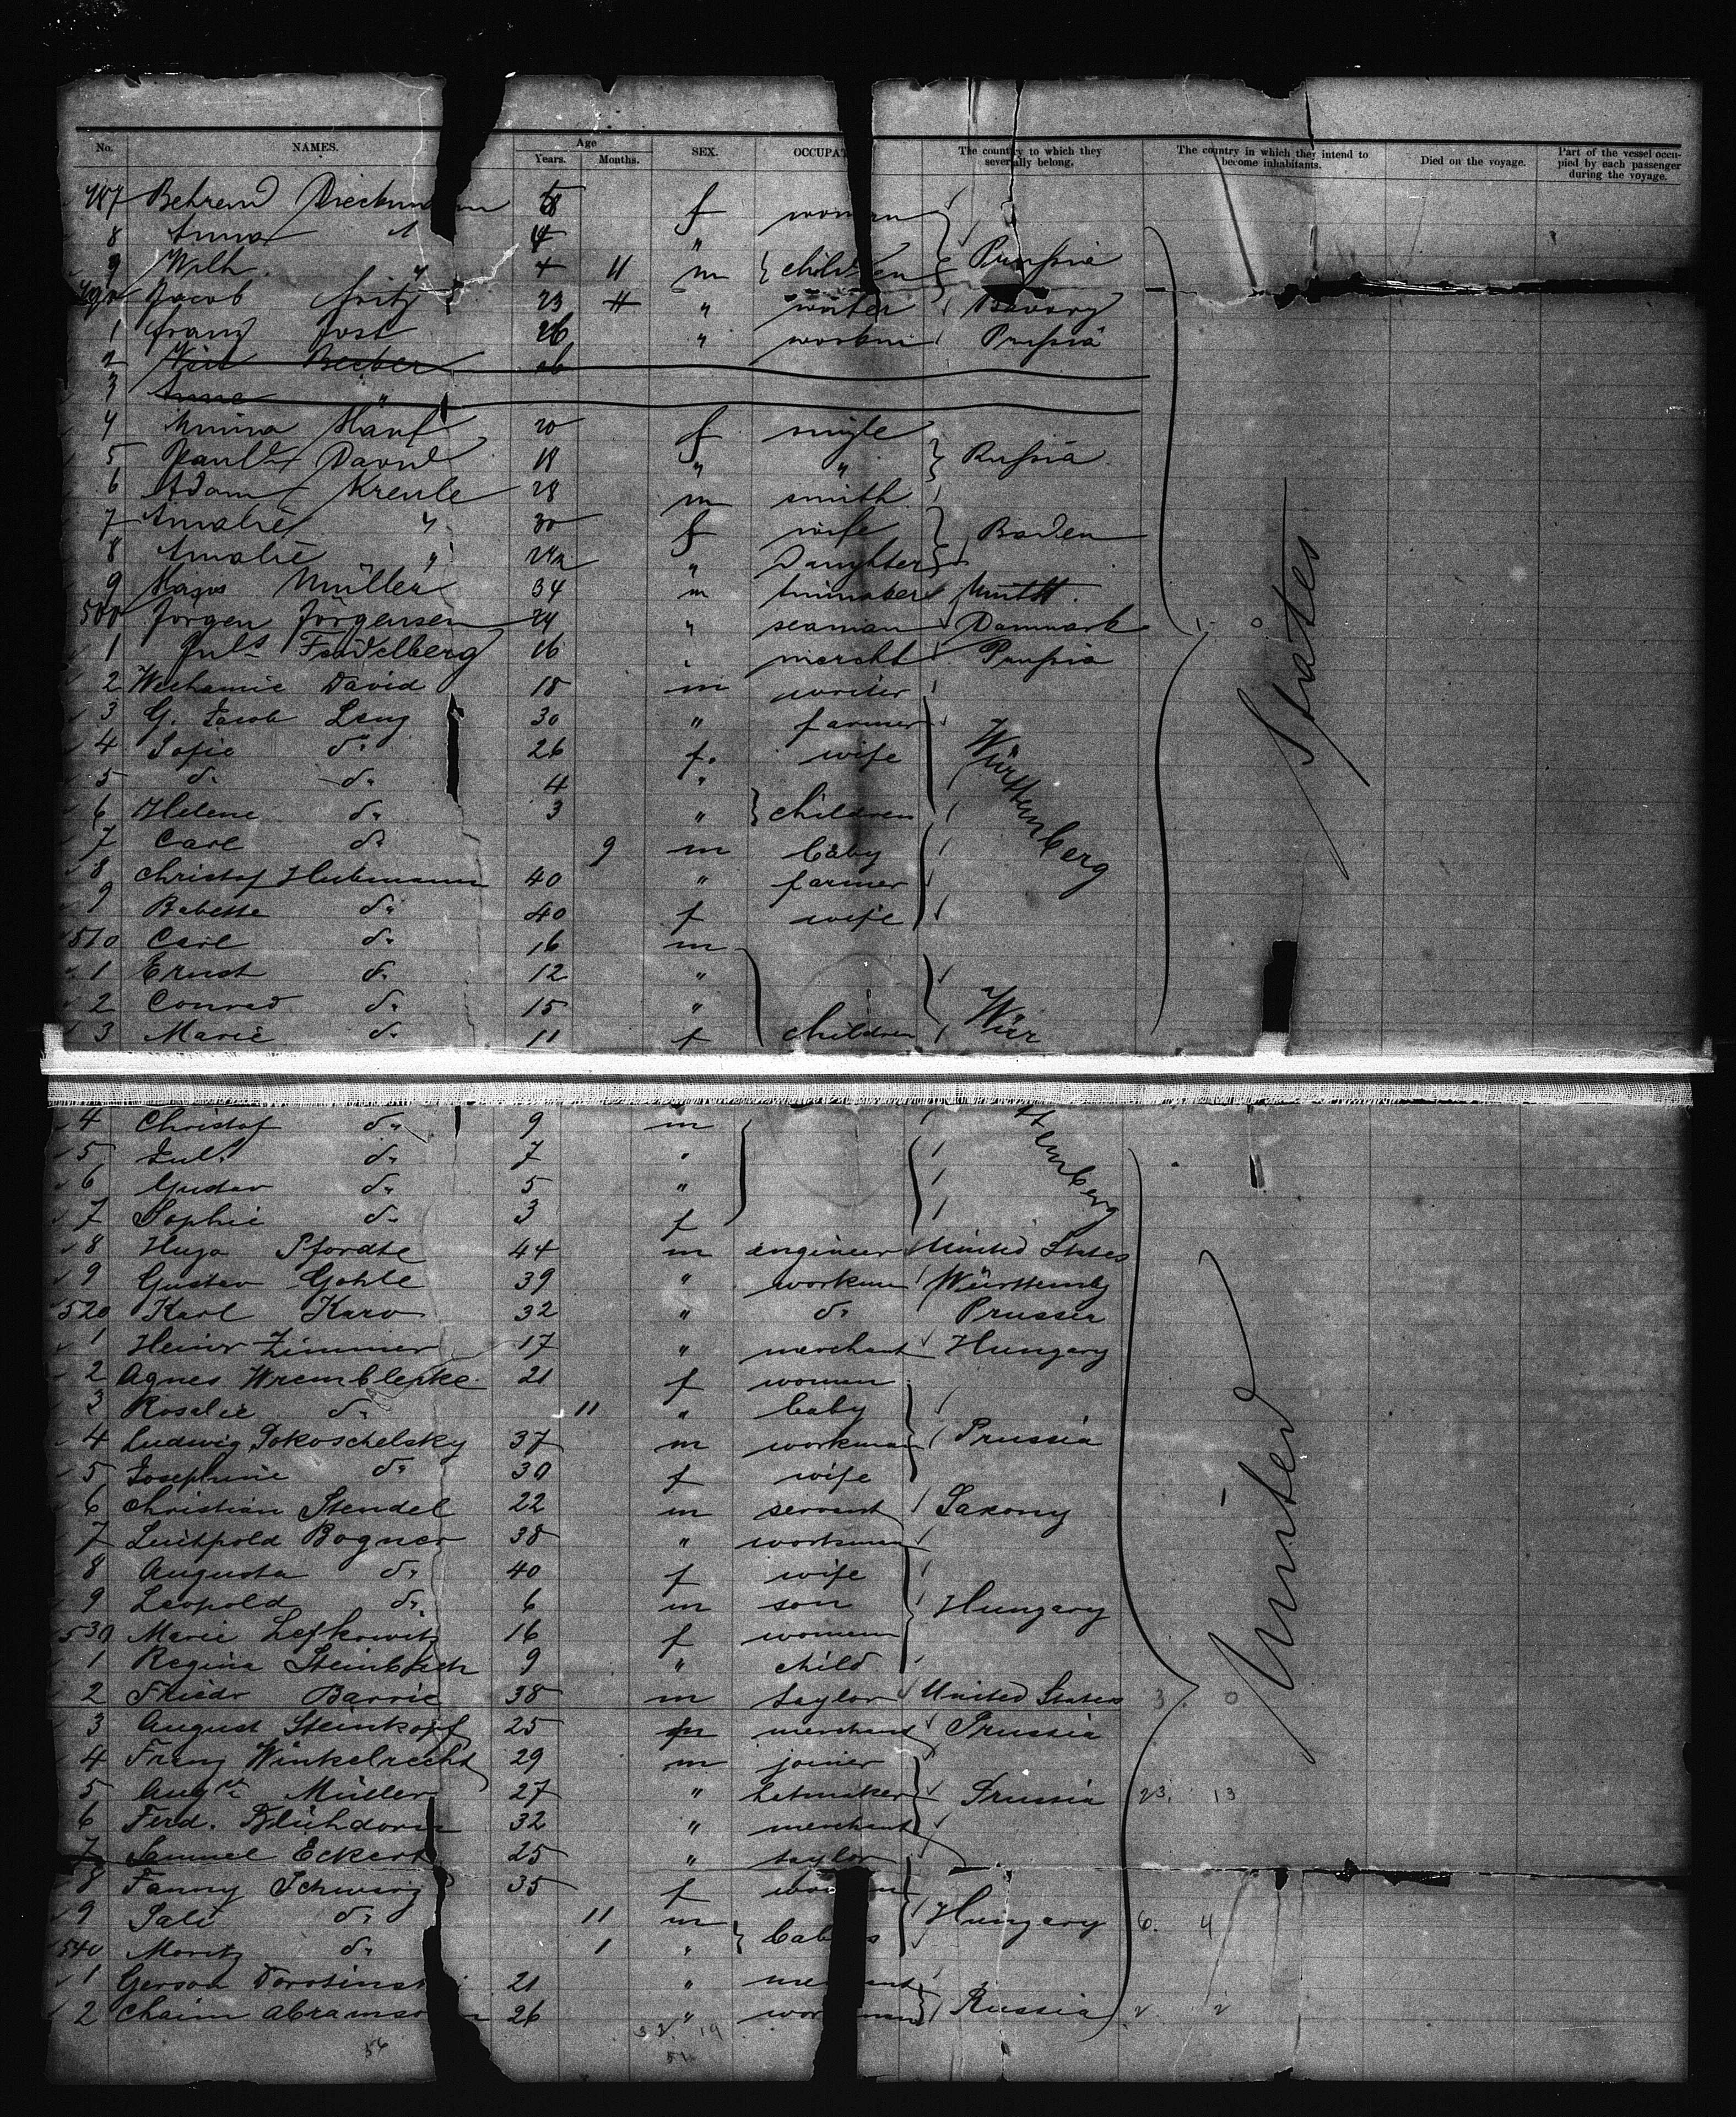 No. NAMES. Age Years. Months. SEX. OCCUPAT The country to which they severally belong. The country in which they intend to become inhabitants. Died on the voyage. Part of the vessel occupied by each passenger during the voyage.
487 Behrend f woman
8 Anna " "
9 Wilh. " 11 m children Prussia
490 Jacob Fritz 23 " Bavary
1 Franz Jost 26 " workm Prussia
2 Beeber
3 Anna "
4 Minna Hanf 20 f single
5 David 18 " " Russia
6 Adam Kreule 28 m smith
7 Amalie " 30 f wife Baden
8 Amalie " " Daughter
9 Müller 34 m
500 Jörgen Jörgensen 24 " seaman Danmark
1 Juls 16 " mercht Prussia
2 David 18 m writer
3 G. Jacob Leng 30 " farmer
4 Sofie do 26 f. wife Württemberg
5 do do 4 "
6 Helene do 3 " children
7 Carl do 9 m baby
8 Christof Hubmann 40 " farmer
9 Babette do 40 f wife
510 Carl do 16 m
1 Ernst do 12 "
2 Conrad do 15 "
3 Marie do 11 f children Würtemberg
4 Christof do 9 m
5 Jul. do 7 "
6 Gustav do 5 "
7 Sophie do 3 f
8 Hugo Pfordte 44 m engineer United States
9 Gustav Gohle 39 " workm Württembg
520 Karl Karo 32 " do Prussia
1 Heinr Zimmer 17 " merchant Hungary
2 Agnes Wremblepke 21 f women
3 Rosalie do 11 " baby
4 Ludwig Sokoschelsky 37 m workman Prussia
5 Josephine do 30 f wife
6 Christian Stendel 22 m servant Saxony
7 Luitpold Bogner 38 " workman
8 Augusta do 40 f wife
9 Leopold do 6 m son Hungary
530 Marie Lefkowitz 16 f women
1 Regina Steinbach 9 " child
2 Friedr Barrie 38 m taylor United States 3 0
3 August Steinkopf 25 m merchant Prussia
4 Franz Winkelrecht 29 m joiner
5 Aug. Müller 27 " hatmaker Prussia 23. 13
6 Ferd. Blühdorn 32 " merchant
7 Samuel Eckert 25 " taylor
8 Fanny Schwarz 35 f women
9 Sali do 11 m Hungary 6. 4
540 Moritz do 1 " babies
1 Gerson 21 " merchant
2 Chaim Abramson 26 " workman Russia 2. 2
32 19
56 51
United States